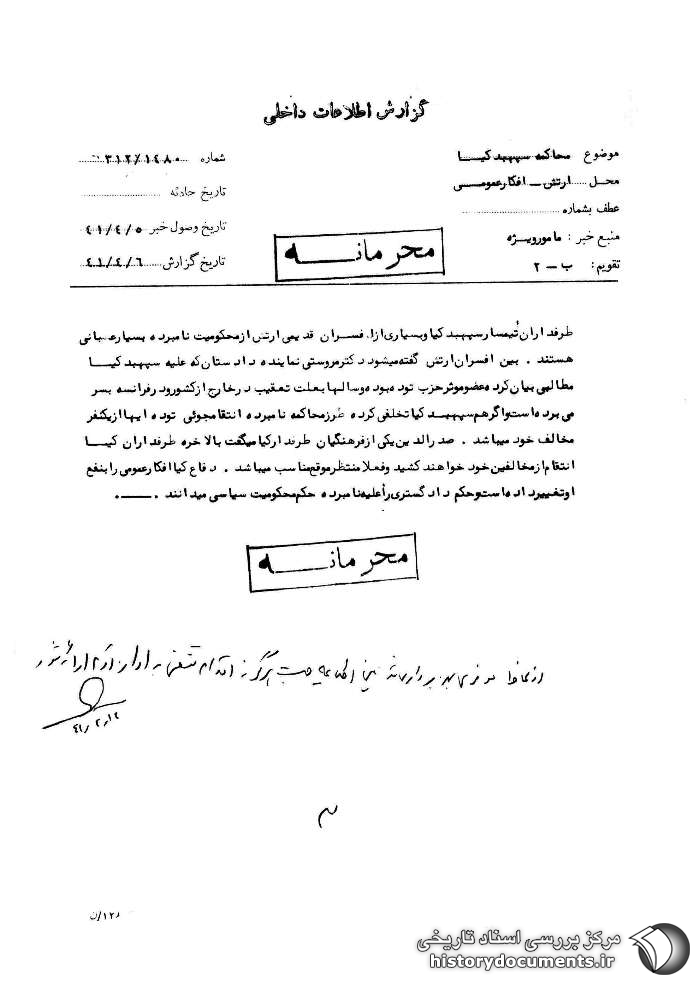 گزارش اطلاعات داخلی
موضوع محاکمه سپهبد کیا
محل ..... ارتش - افکار عمومی
عطف بشماره
منبع خبر : مامور ویژه
تقویم : ب - ۲
شماره ۳۱۲/۱۴۸۰
تاریخ حادثه
تاریخ وصول خبر ۴۱/۴/۵
تاریخ گزارش ۴۱/۴/۶
محرمانه
طرفداران تیمسار سپهبد کیا و بسیاری از افسران قدیمی ارتش از محکومیت نامبرده بسیار عصبانی
هستند . بین افسران ارتش گفته میشود دکتر مروستی نماینده دادستان که علیه سپهبد کیا
مطالبی بیان کرده عضو موثر حزب توده بوده و سالها بعلت تعقیب در خارج از کشور و در فرانسه بسر
می برده است و اگر هم سپهبد کیا تخلفی کرده طرز محاکمه نامبرده انتقامجوئی توده ایها از یکنفر
مخالف خود میباشد . صدرالدین یکی از فرهنگیان طرفدار کیا میگفت بالاخره طرفداران کیا
انتقام از مخالفین خود خواهند کشید و فعلا منتظر موقع مناسب میباشد . دفاع کیا افکار عمومی را بنفع
او تغییر داده است و حکم دادگستری را علیه نامبرده حکم محکومیت سیاسی میدانند .
محرمانه
۱۲/ن
مرکز بررسی اسناد تاریخی
historydocuments.ir